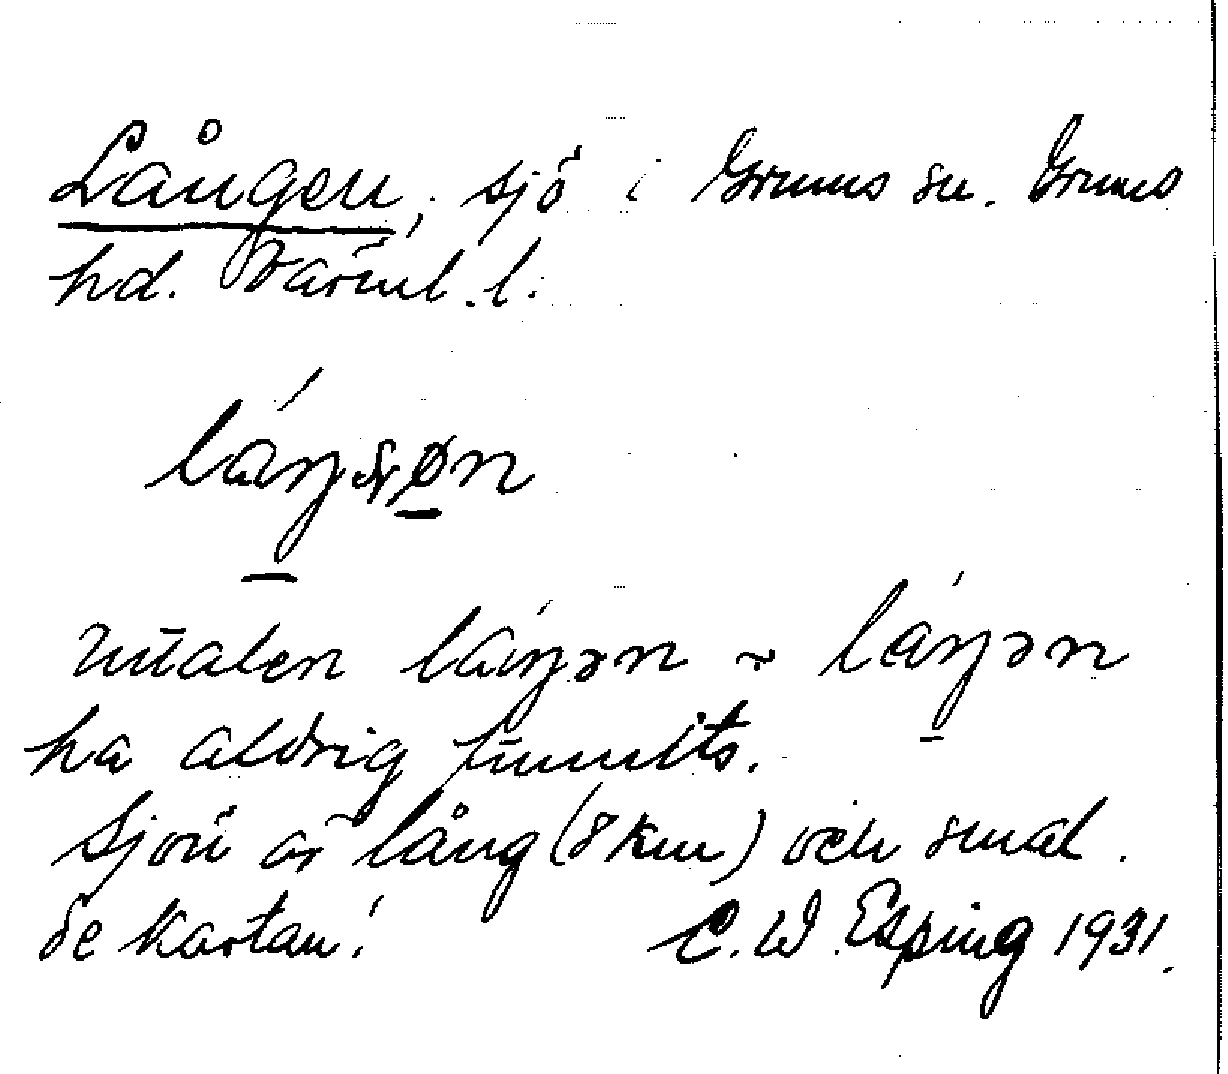 Lången, sjö i Grums sn. Grums
hd. Värml. l.
láŋsøn
uttalen láŋən ~ láŋən
ha aldrig funnits.
Sjön är lång (8 km) och smal.
Se kartan!
C. W. Esping 1931.